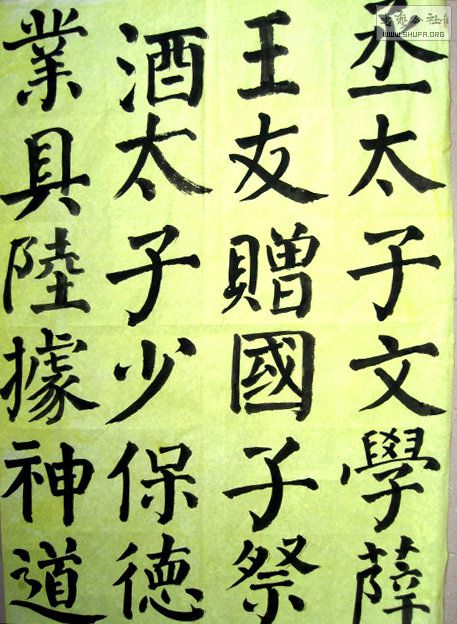 丞太子文學薛
王友贈國子祭
酒太子少保德
業具陸據神道
WWW.SHUFA.ORG